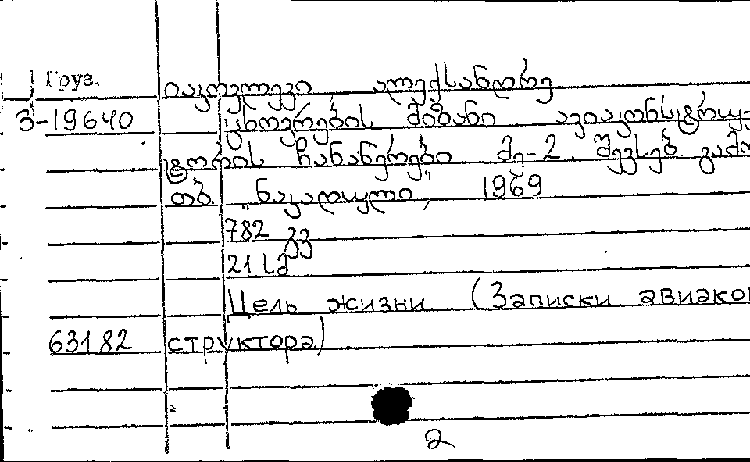 Груз.
იაკოვლევი ალექსანდრე
3-19640 ცხოვრების მიზანი ავიაკონსტრუქ-
ტორის ჩანაწერები მე-2 შევსებ გამო
თბ. „ნაკადული“, 1969
782 გვ
21 სმ
Цель жизни (Записки авиакон
63182 структора)
2